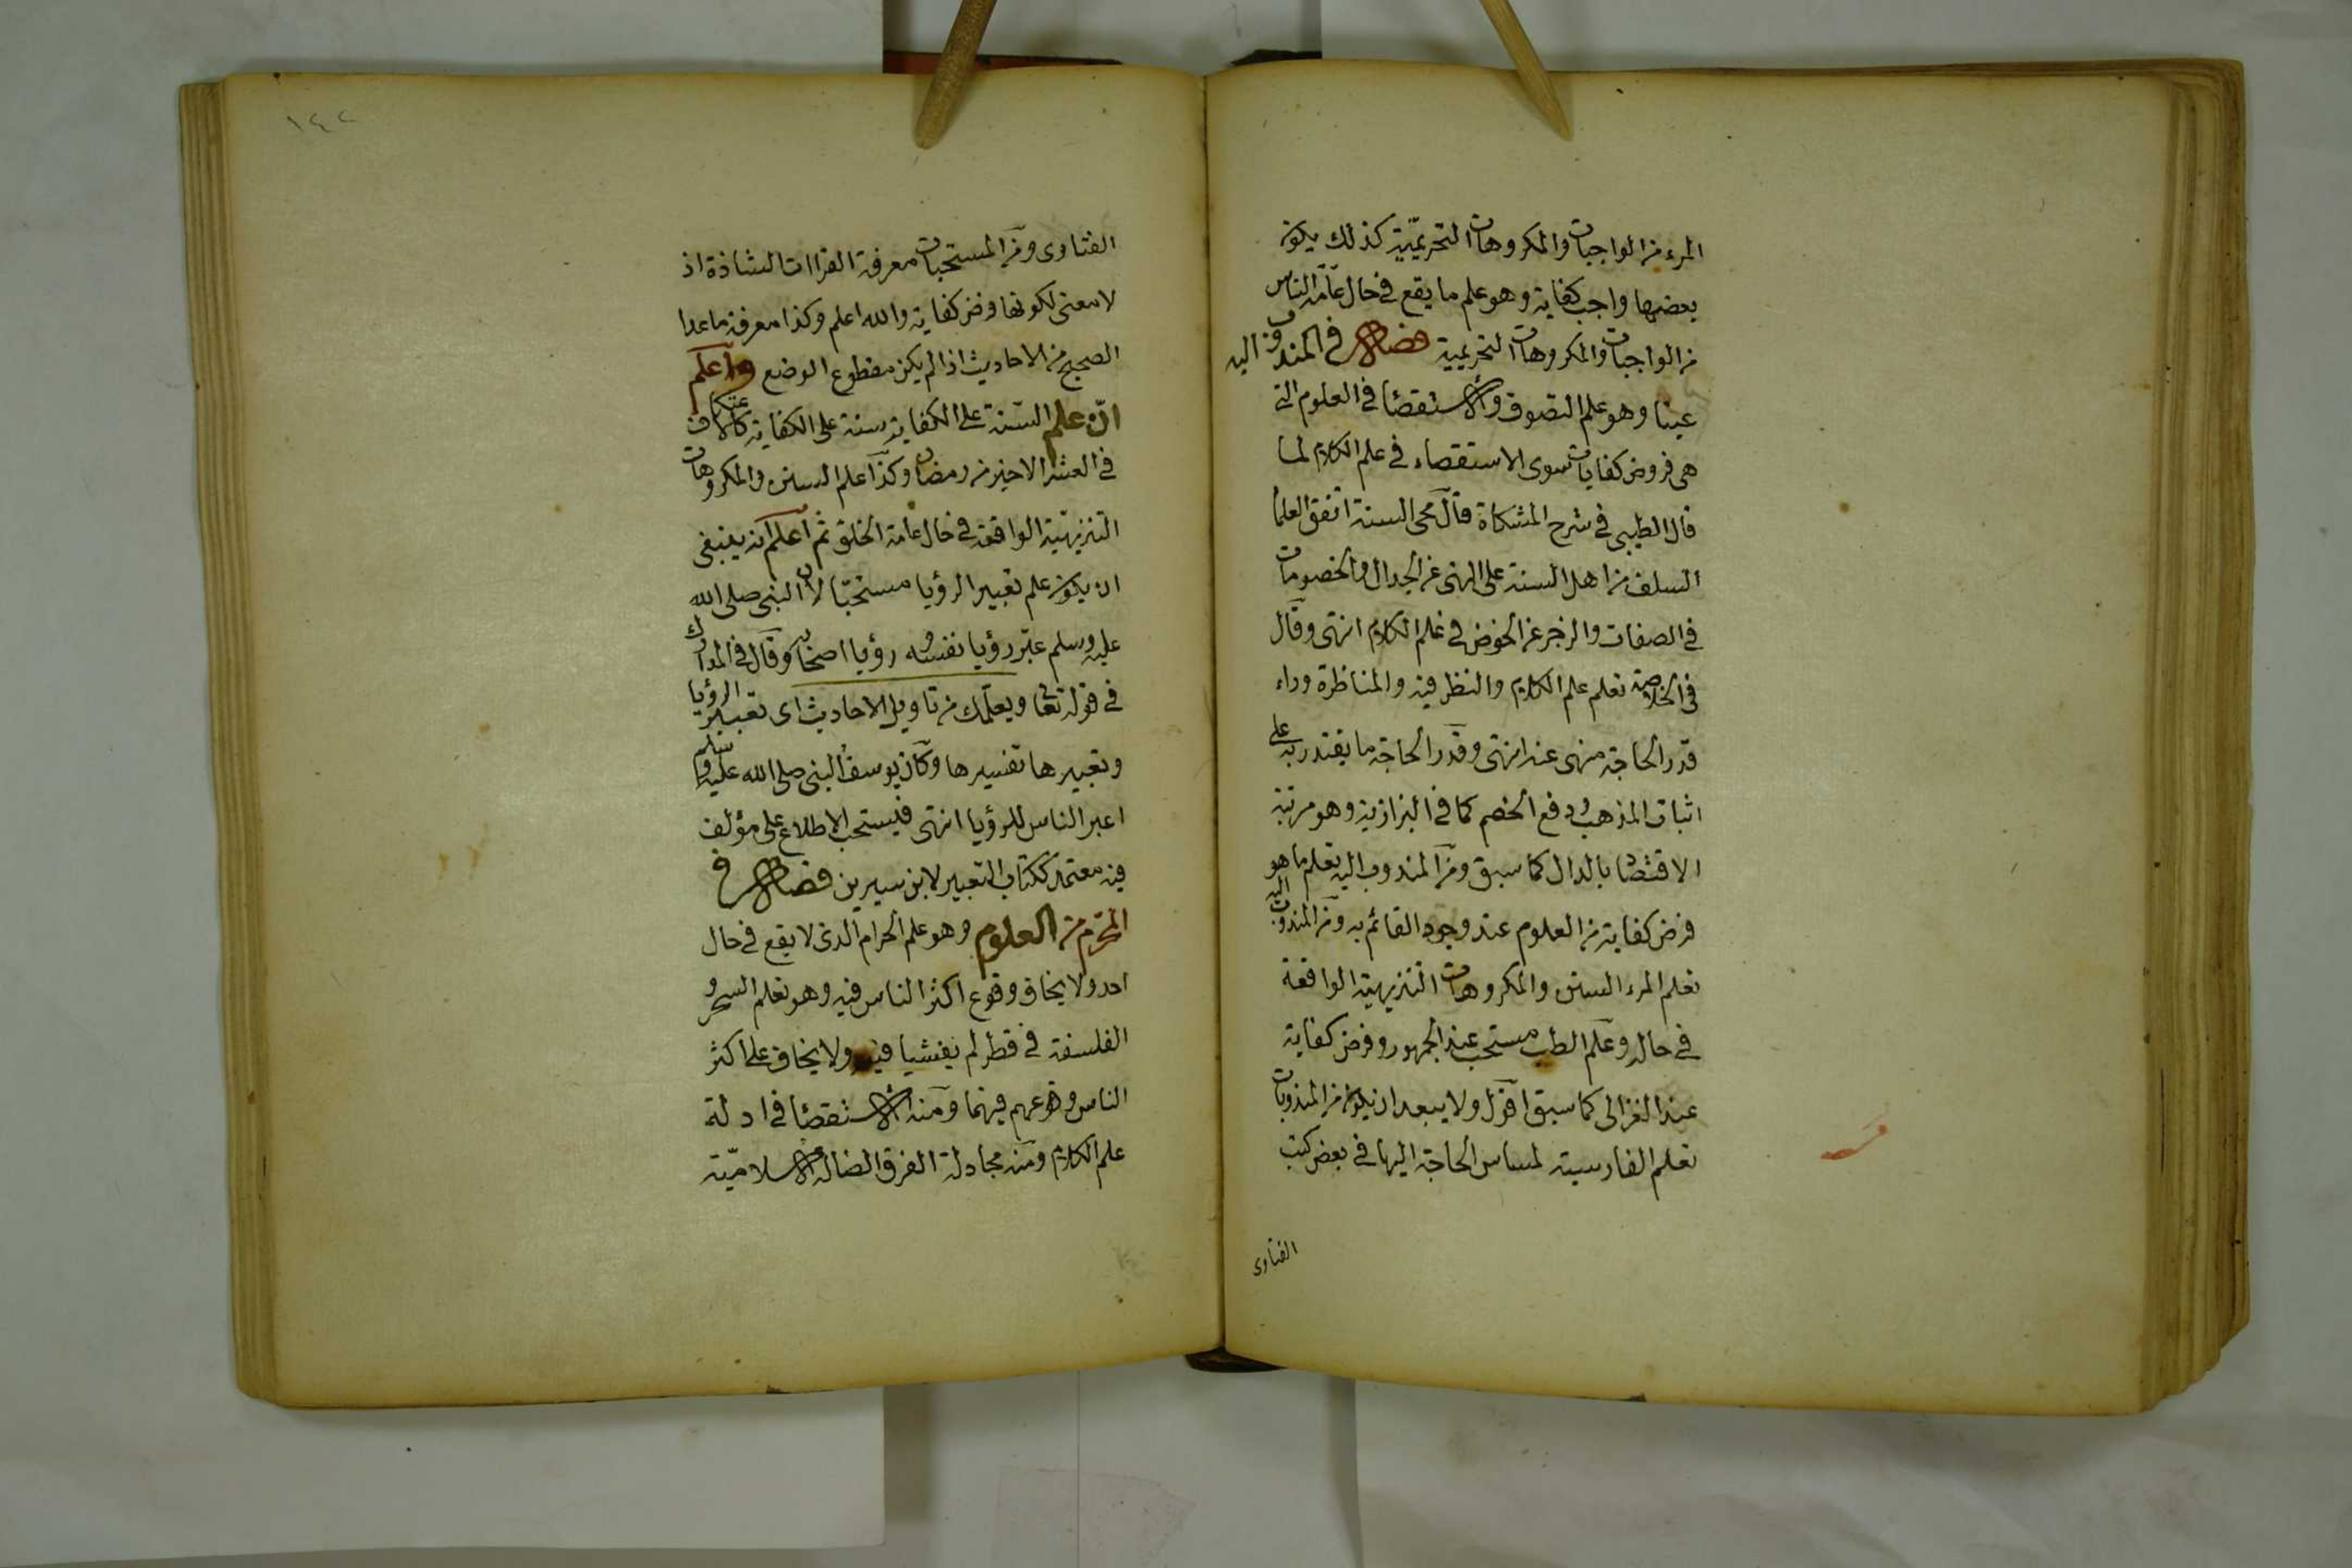 المرء من الواجبات والمكروهات التحريميّة كذلك يكون
بعضها واجب كفاية وهو علم ما يقع في حال عامّة الناس
من الواجبات والمكروهات التحريمية فصل في المندوب اليه
عينا وهو علم التصوف والاستقصا في العلوم التى
هى فروض كفايات سوى الاستقصاء في علم الكلام لما
قال الطيبى في شرح المشكاة قال محى السنة اتفق العلما
السلف من اهل السنة على النهى عن الجدال والخصومات
في الصفات والزجر عن الخوض في علم الكلام انتهى وقال
في الخلاصة تعلم علم الكلام والنظر فيه والمناظرة وراء
قدر الحاجة منهى عنه انتهى وقدر الحاجة ما يقتدر به على
اثبات المذهب ودفع الخصم كما في البزازية وهو مرتبة
الاقتصاد بالدال كما سبق ومن المندوب اليه تعلم ما هو
فرض كفاية من العلوم عند وجود القائم به ومن المندوب اليه
تعلم المرء السنن والمكروهات التنزيهية الواقعة
في حاله وعلم الطب مستحب عند الجمهور وفرض كفاية
عند الغزالى كما سبق اقول ولا يبعد ان يكون من المندوبات
تعلم الفارسية لمساس الحاجة اليها في بعض كتب
الفتاوى
١٤٢
الفتاوى ومن المستحبات معرفة القراات الشاذة اذ
لا معنى لكونها فرض كفاية والله اعلم وكذا معرفة ما عدا
الصحيح من الاحاديث اذا لم يكن مقطوع الوضع واعلم
انّ علم السّنة على الكفاية سنة على الكفاية كالاعتكاف
في العشر الاخير من رمضان وكذا علم السنن والمكروهات
التنزيهيّة الواقعة في حال عامة الخلق ثم اعلم انه ينبغى
ان يكون علم تعبير الرؤيا مستحبّا لان النبى صلى الله
عليه وسلم عبّر رؤيا نفسه ورؤيا اصحابه وقال في المدارك
في قوله تعالى ويعلّمك من تاويل الاحاديث اى تعبير الرؤيا
وتعبيرها تفسيرها وكان يوسف النبى صلى الله عليه وسلم
اعبر الناس للرؤيا انتهى فيستحب الاطلاع على مؤلف
فيه معتمد ككتاب التعبير لابن سيرين فصل في
المحرّم من العلوم وهو علم الحرام الذى لا يقع في حال
احد ولا يخاف وقوع اكثر الناس فيه وهو تعلم السحر و
الفلسفة في قطر لم يفشيا فيه ولا يخاف على اكثر
الناس وقوعهم فيهما ومنه الاستقصا في ادلة
علم الكلام ومنه مجادلة الفرق الضالة الاسلاميّة